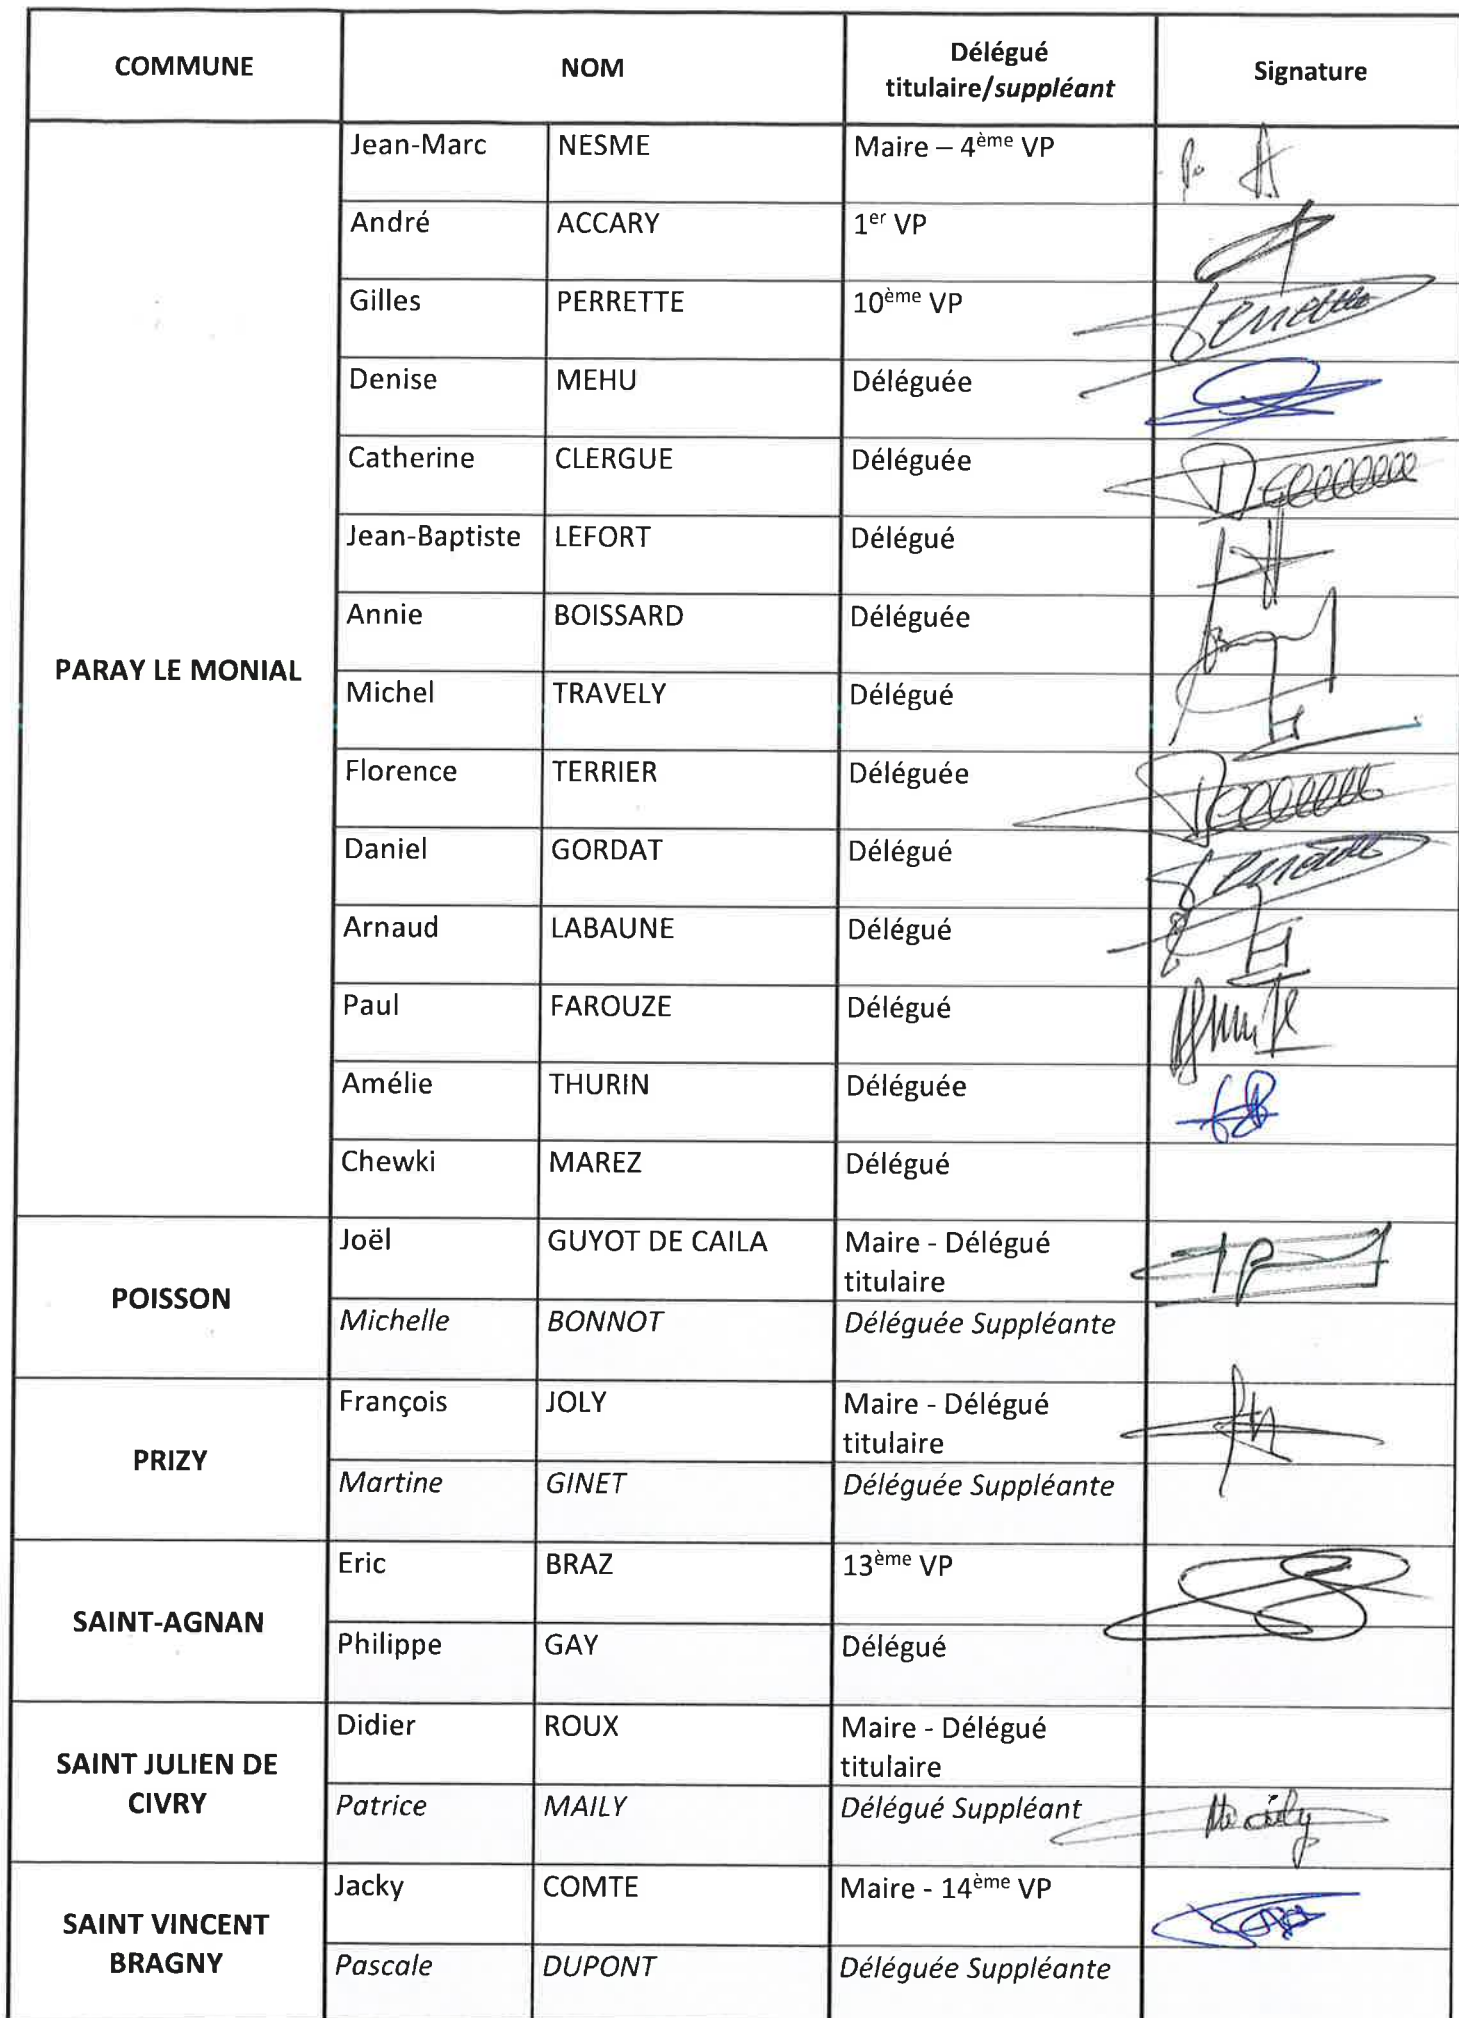 COMMUNE NOM Délégué titulaire/suppléant Signature
PARAY LE MONIAL
Jean-Marc NESME Maire – 4ème VP
André ACCARY 1er VP
Gilles PERRETTE 10ème VP
Denise MEHU Déléguée
Catherine CLERGUE Déléguée
Jean-Baptiste LEFORT Délégué
Annie BOISSARD Déléguée
Michel TRAVELY Délégué
Florence TERRIER Déléguée
Daniel GORDAT Délégué
Arnaud LABAUNE Délégué
Paul FAROUZE Délégué
Amélie THURIN Déléguée
Chewki MAREZ Délégué
POISSON
Joël GUYOT DE CAILA Maire - Délégué
titulaire
Michelle BONNOT Déléguée Suppléante
PRIZY
François JOLY Maire - Délégué
titulaire
Martine GINET Déléguée Suppléante
SAINT-AGNAN
Eric BRAZ 13ème VP
Philippe GAY Délégué
SAINT JULIEN DE
CIVRY
Didier ROUX Maire - Délégué
titulaire
Patrice MAILY Délégué Suppléant Maily
SAINT VINCENT
BRAGNY
Jacky COMTE Maire - 14ème VP
Pascale DUPONT Déléguée Suppléante